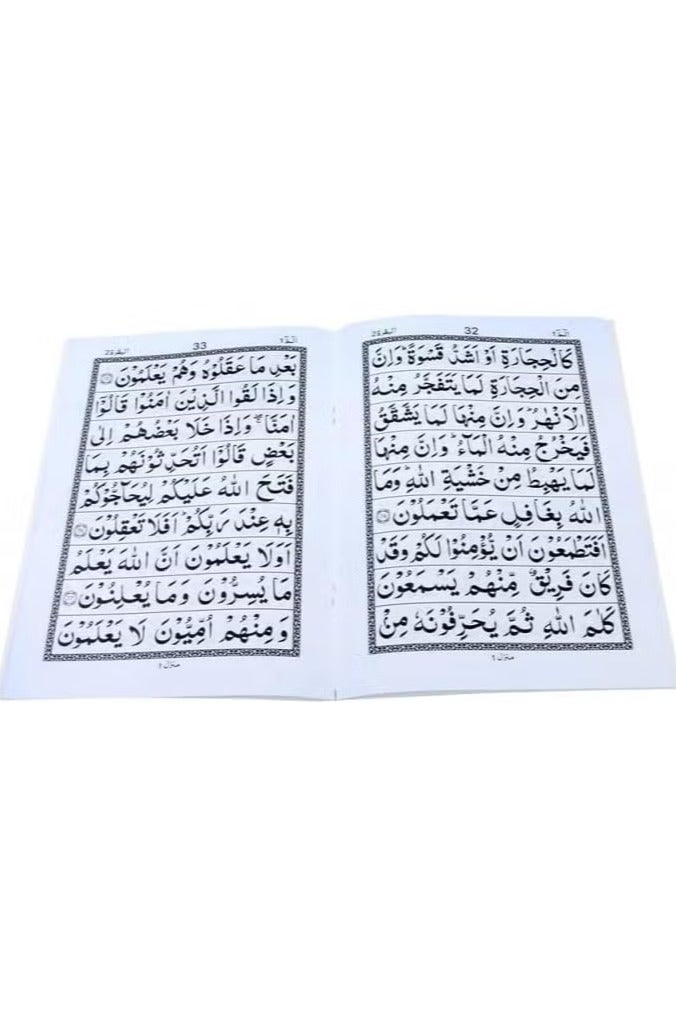 الٓمّٓ ١ 32 البقرة ٢
كَالْحِجَارَةِ اَوْ اَشَدُّ قَسْوَةً ؕ وَاِنَّ
مِنَ الْحِجَارَةِ لَمَا يَتَفَجَّرُ مِنْهُ
الْاَنْهٰرُ ؕ وَاِنَّ مِنْهَا لَمَا يَشَّقَّقُ
فَيَخْرُجُ مِنْهُ الْمَآءُ ؕ وَاِنَّ مِنْهَا
لَمَا يَهْبِطُ مِنْ خَشْيَةِ اللّٰهِ ؕ وَمَا
اللّٰهُ بِغَافِلٍ عَمَّا تَعْمَلُوْنَ
اَفَتَطْمَعُوْنَ اَنْ يُّؤْمِنُوْا لَكُمْ وَقَدْ
كَانَ فَرِيْقٌ مِّنْهُمْ يَسْمَعُوْنَ
كَلٰمَ اللّٰهِ ثُمَّ يُحَرِّفُوْنَهٗ مِنْۢ
منزل ١
الٓمّٓ ١ 33 البقرة ٢
بَعْدِ مَا عَقَلُوْهُ وَهُمْ يَعْلَمُوْنَ
وَاِذَا لَقُوا الَّذِيْنَ اٰمَنُوْا قَالُوْٓا
اٰمَنَّا ۖۚ وَاِذَا خَلَا بَعْضُهُمْ اِلٰى
بَعْضٍ قَالُوْٓا اَتُحَدِّثُوْنَهُمْ بِمَا
فَتَحَ اللّٰهُ عَلَيْكُمْ لِيُحَآجُّوْكُمْ
بِهٖ عِنْدَ رَبِّكُمْ ؕ اَفَلَا تَعْقِلُوْنَ
اَوَلَا يَعْلَمُوْنَ اَنَّ اللّٰهَ يَعْلَمُ
مَا يُسِرُّوْنَ وَمَا يُعْلِنُوْنَ
وَمِنْهُمْ اُمِّيُّوْنَ لَا يَعْلَمُوْنَ
منزل ١